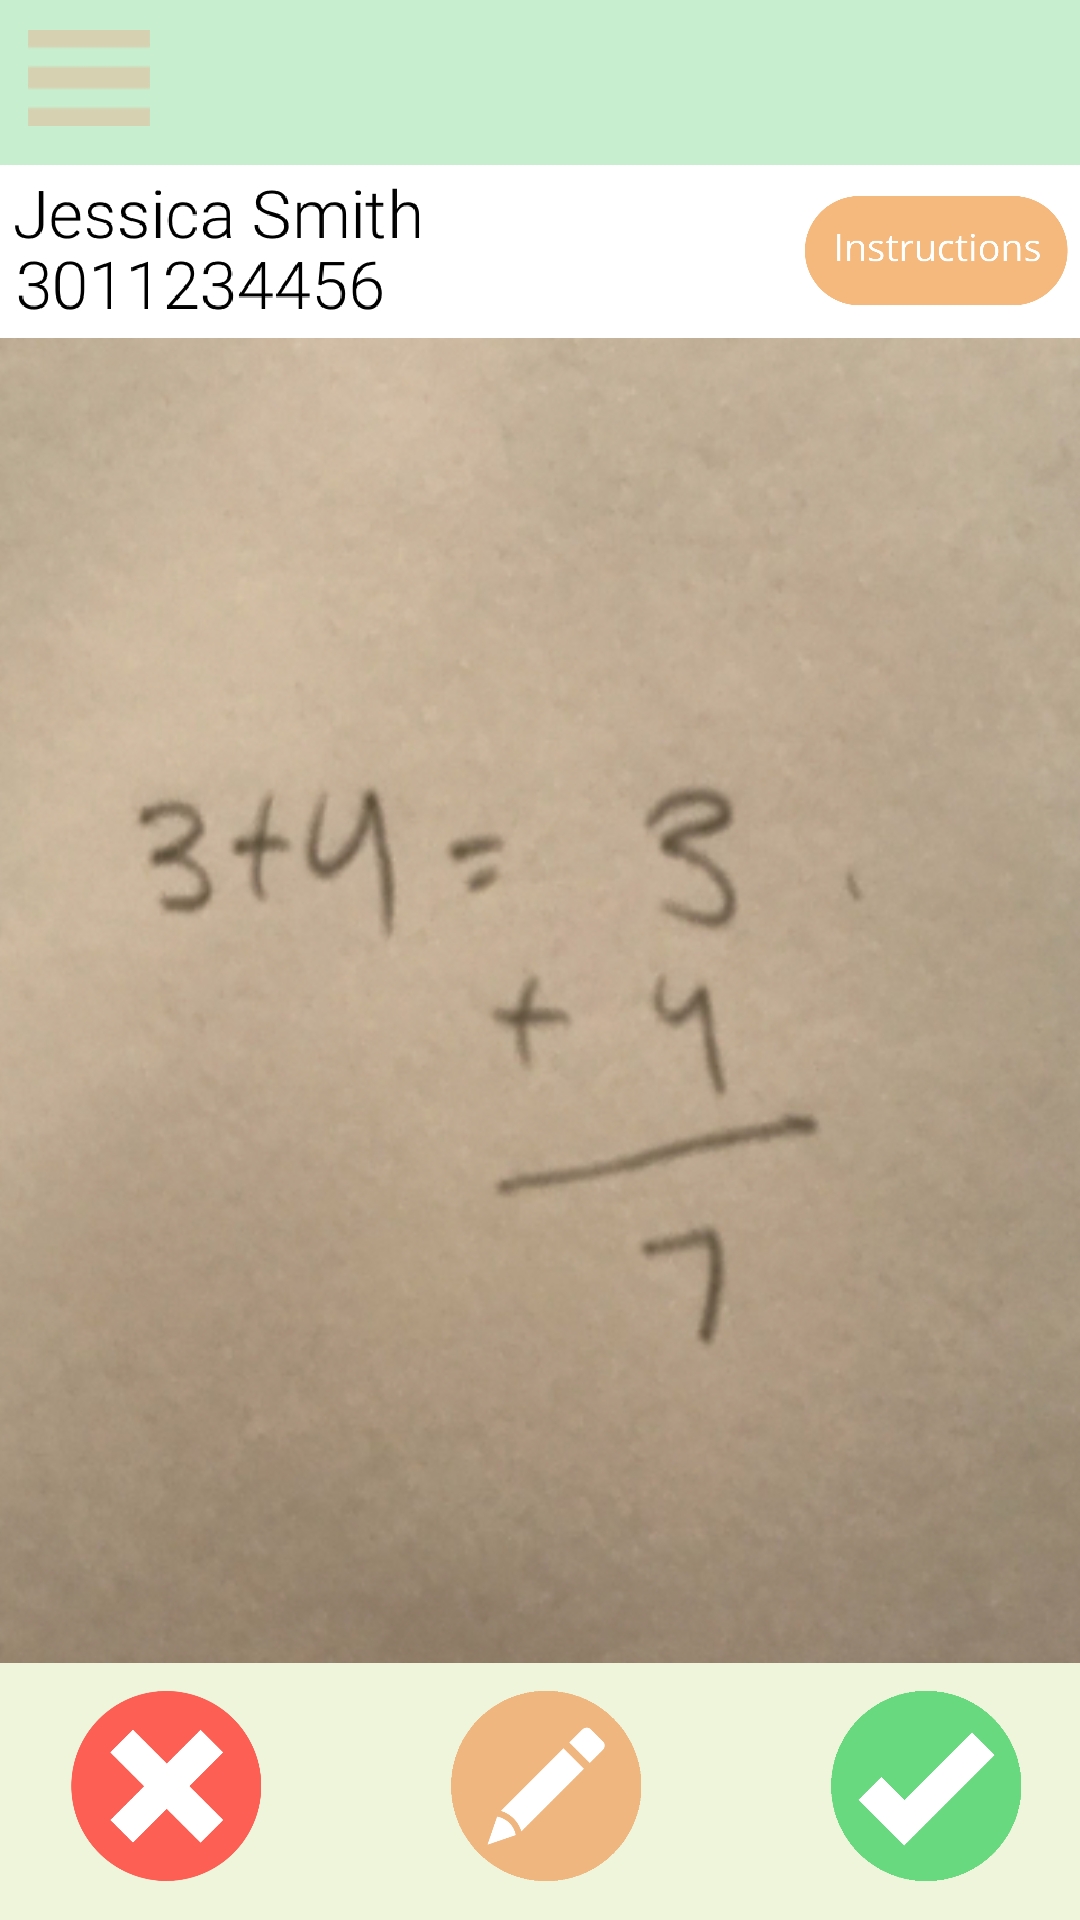 Jessica Smith
3011234456
Instructions
3+4= 3
+ 4
7